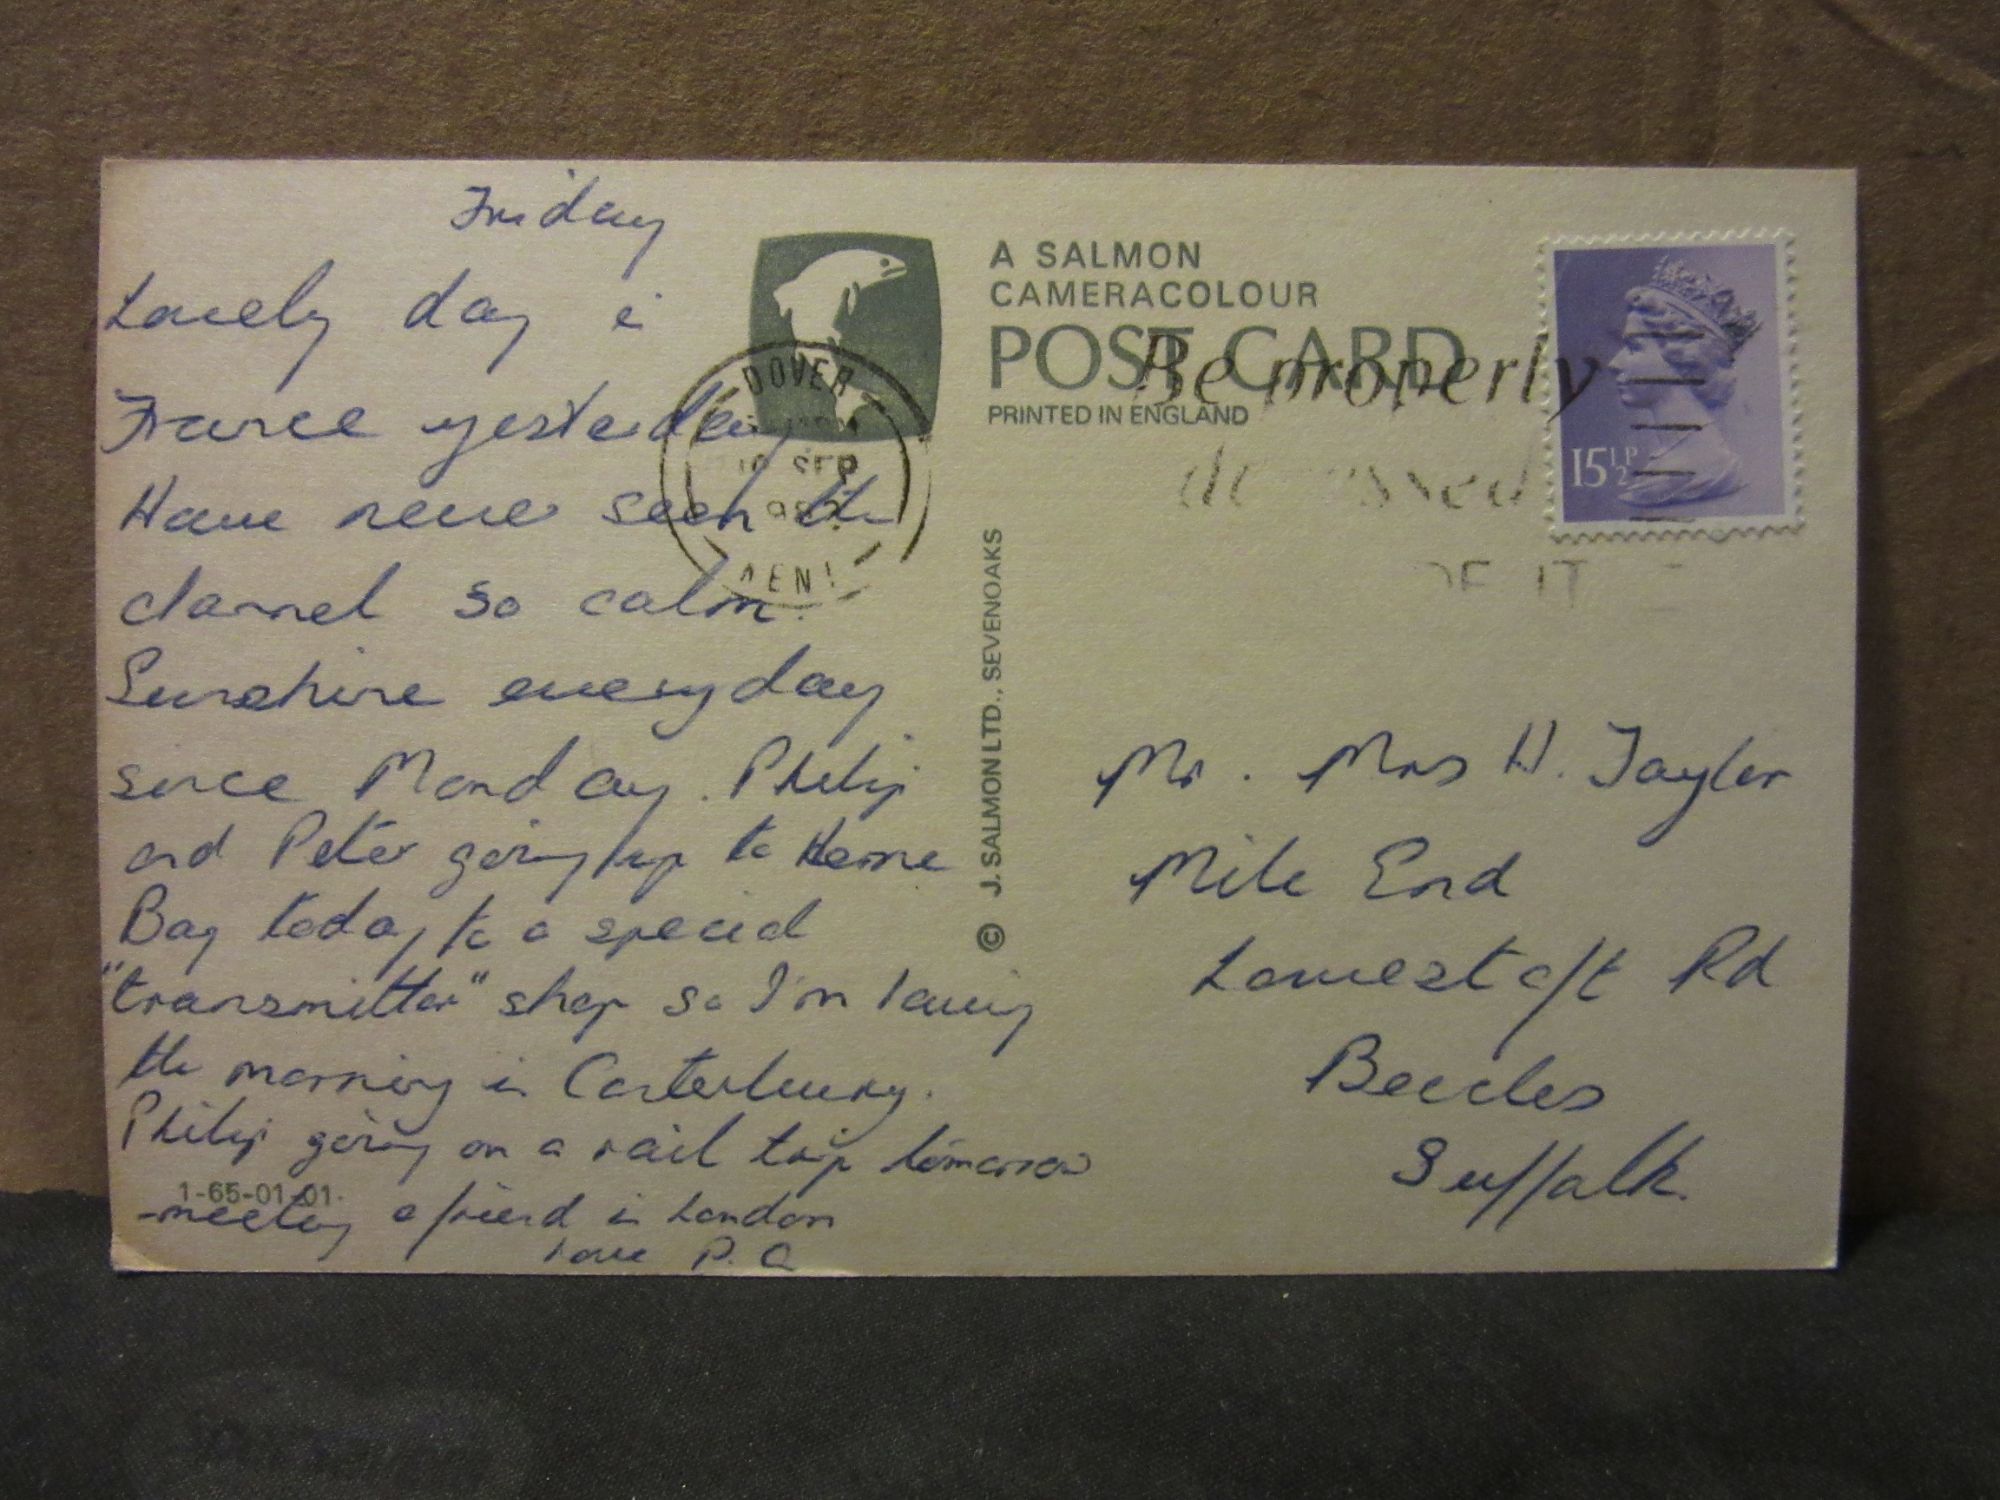 Friday
Lovely day in
France yesterday
Have never seen the
channel so calm.
Sunshine everyday
since Monday. Philip
and Peter going up to Herne
Bay today to a special
"transmitter" shop so I'm having
the morning in Canterbury.
Philip going on a rail trip tomorrow
-meeting a friend in London
Love P.
1-65-01-01.
DOVER
SEP
KENT
A SALMON
CAMERACOLOUR
POST CARD
PRINTED IN ENGLAND
© J. SALMON LTD., SEVENOAKS
Be properly
15½P
Mr. Mrs H. Taylor
Mile End
Lowestoft Rd
Beccles
Suffolk.